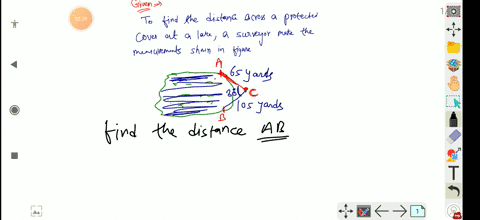 Given →
To find the distance across a protected
cover at a lake, a surveyor make the
measurements shown in figure
A
65 yards
38
C
105 yards
B
find the distance AB
Aa
1